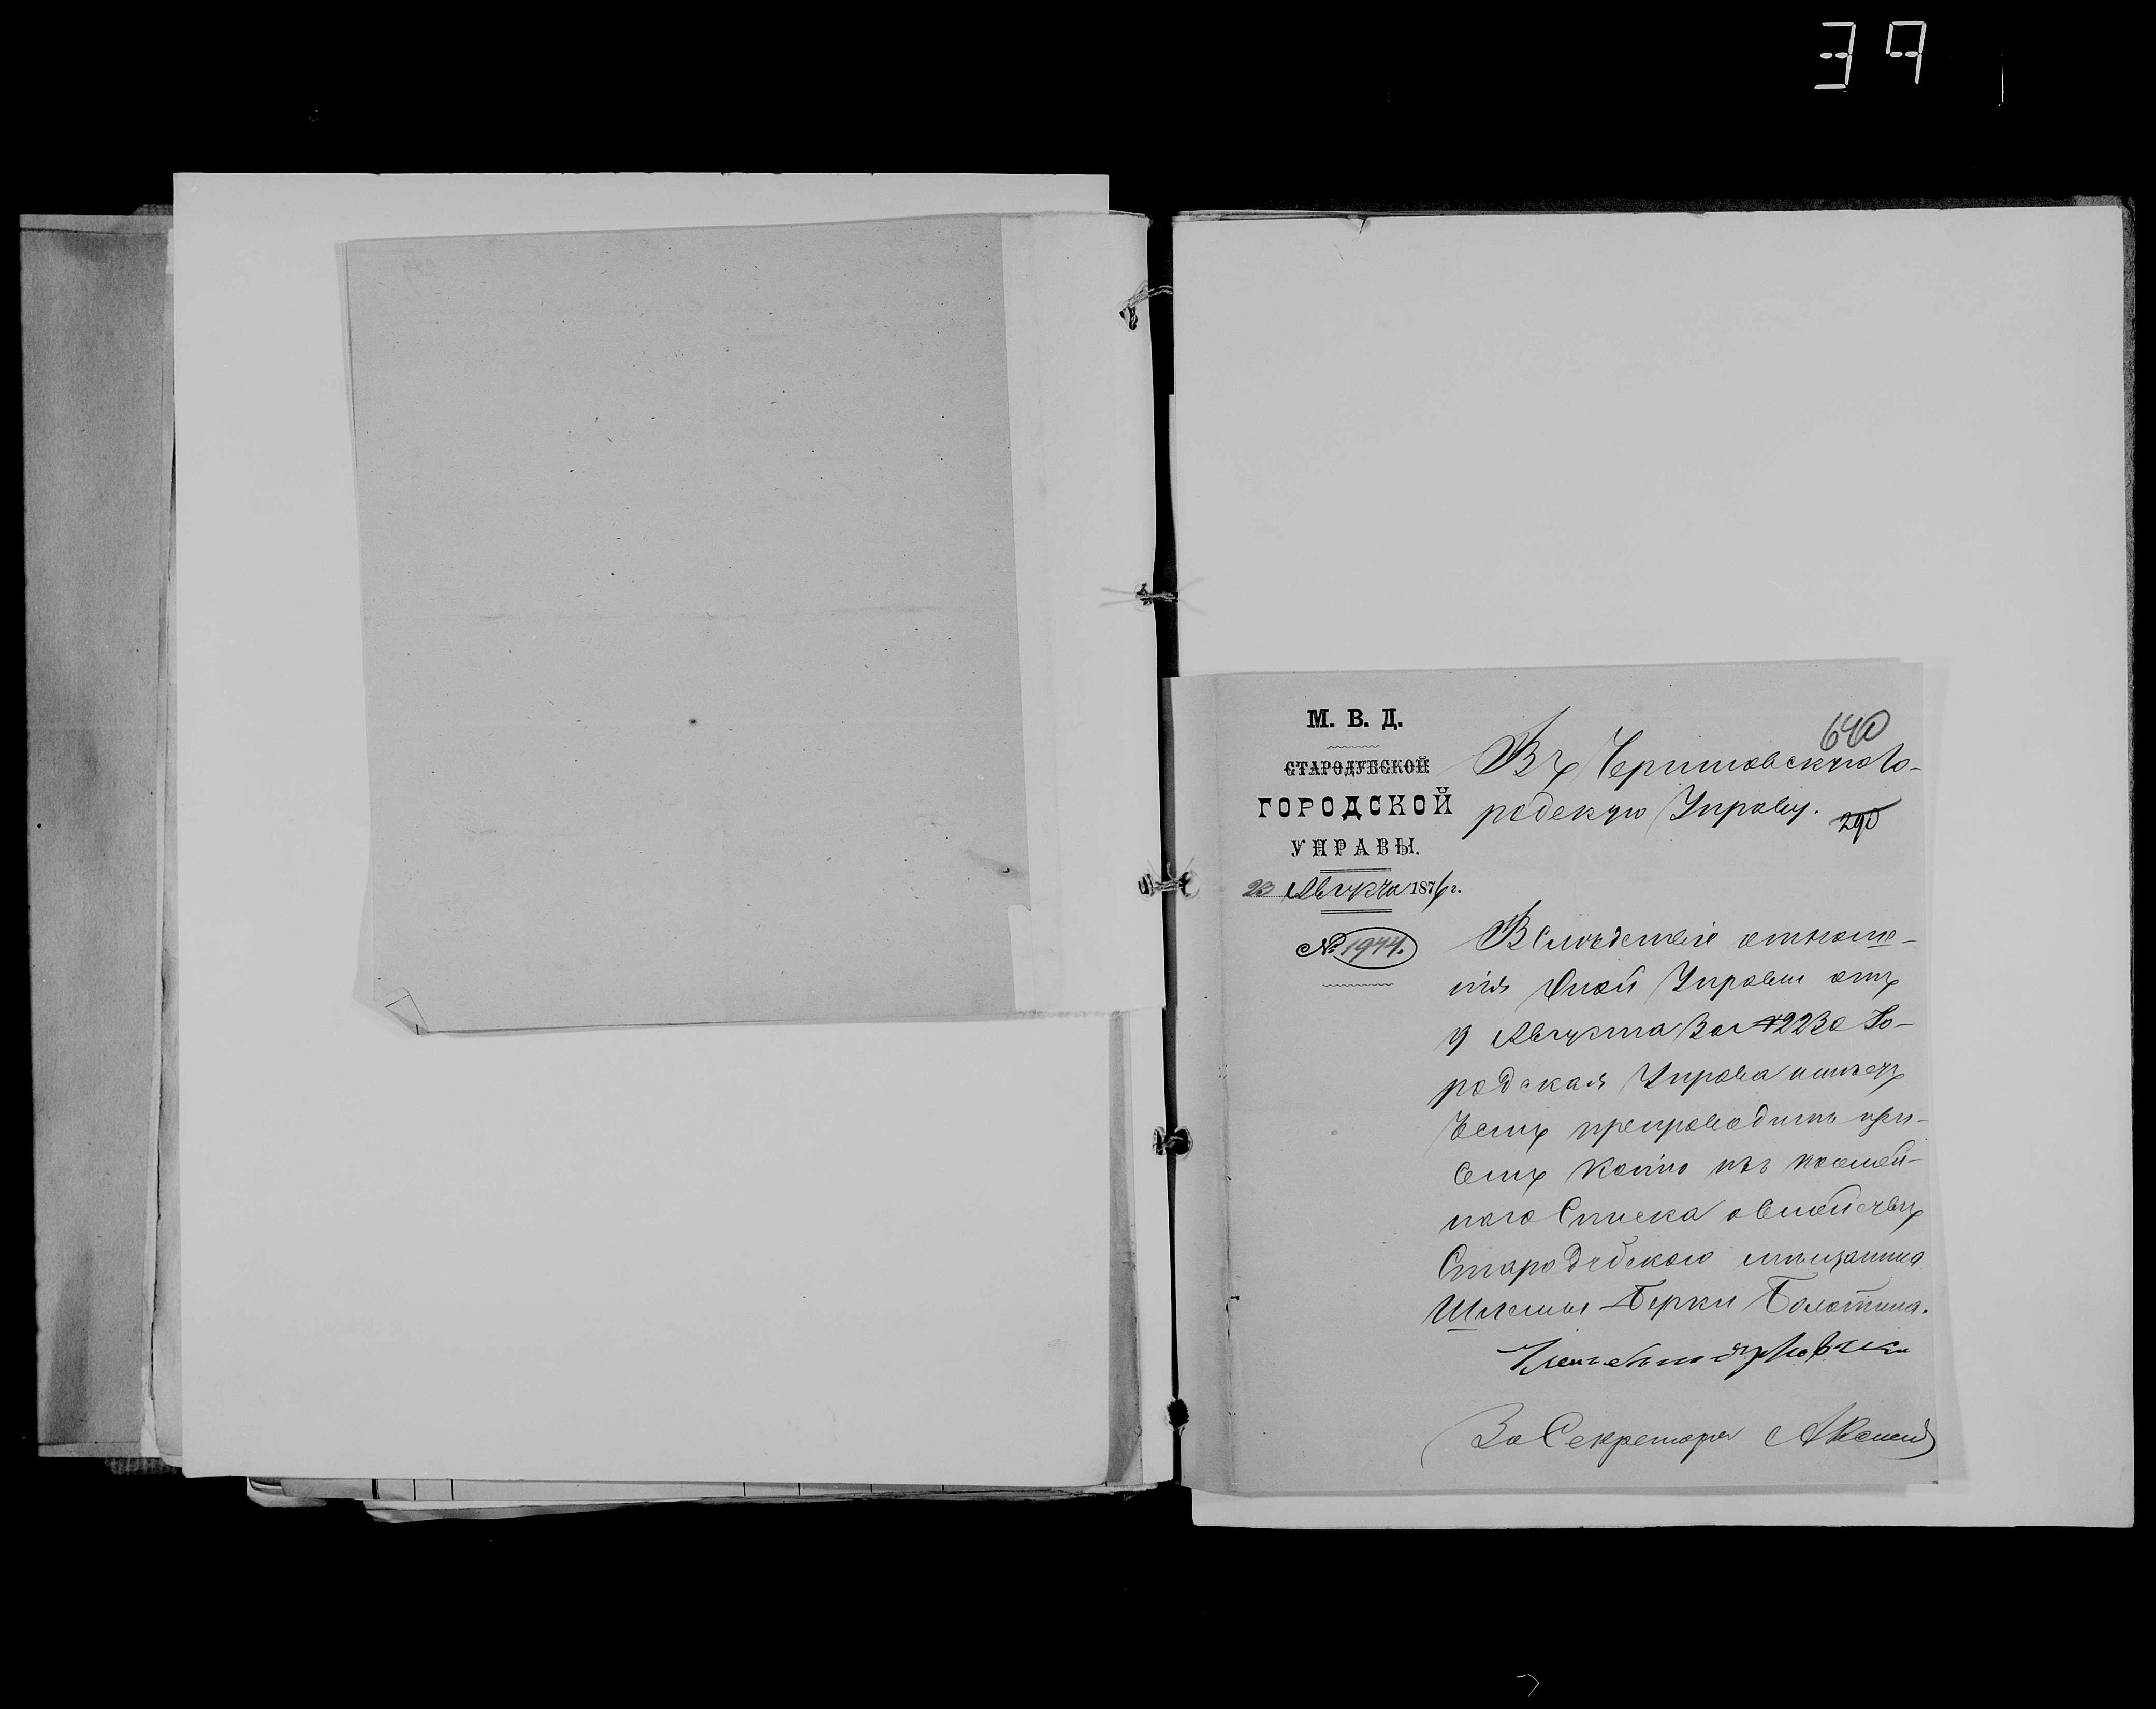 39
М. В. Д.
СТАРОДУБСКОЙ
ГОРОДСКОЙ
УПРАВЫ.
23 Августа 1876 г.
№ 1944.
640
Въ Черниговскую Го-
родскую Управу.
290
Вслѣдствіе отноше-
нія Оной Управы отъ
9 Августа за № 2230 Го-
родская Управа имѣетъ
честь препроводить при
семъ копію изъ посемей-
наго Списка о семействѣ
Стародубскаго мѣщанина
Шлемы-Берки Болотина.
За Секретаря